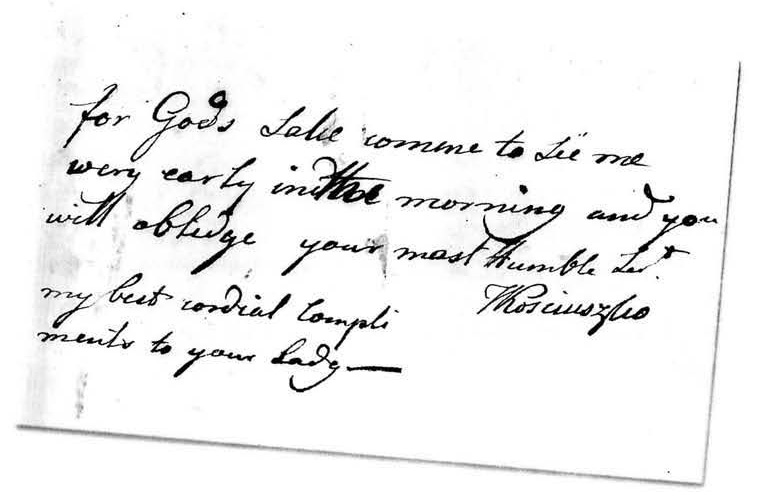 for God's Sake comme to see me
wery early in the morning and you
will obledge your most Humble Sert
TKosciuszko
my best cordial Compli
ments to your Lady —